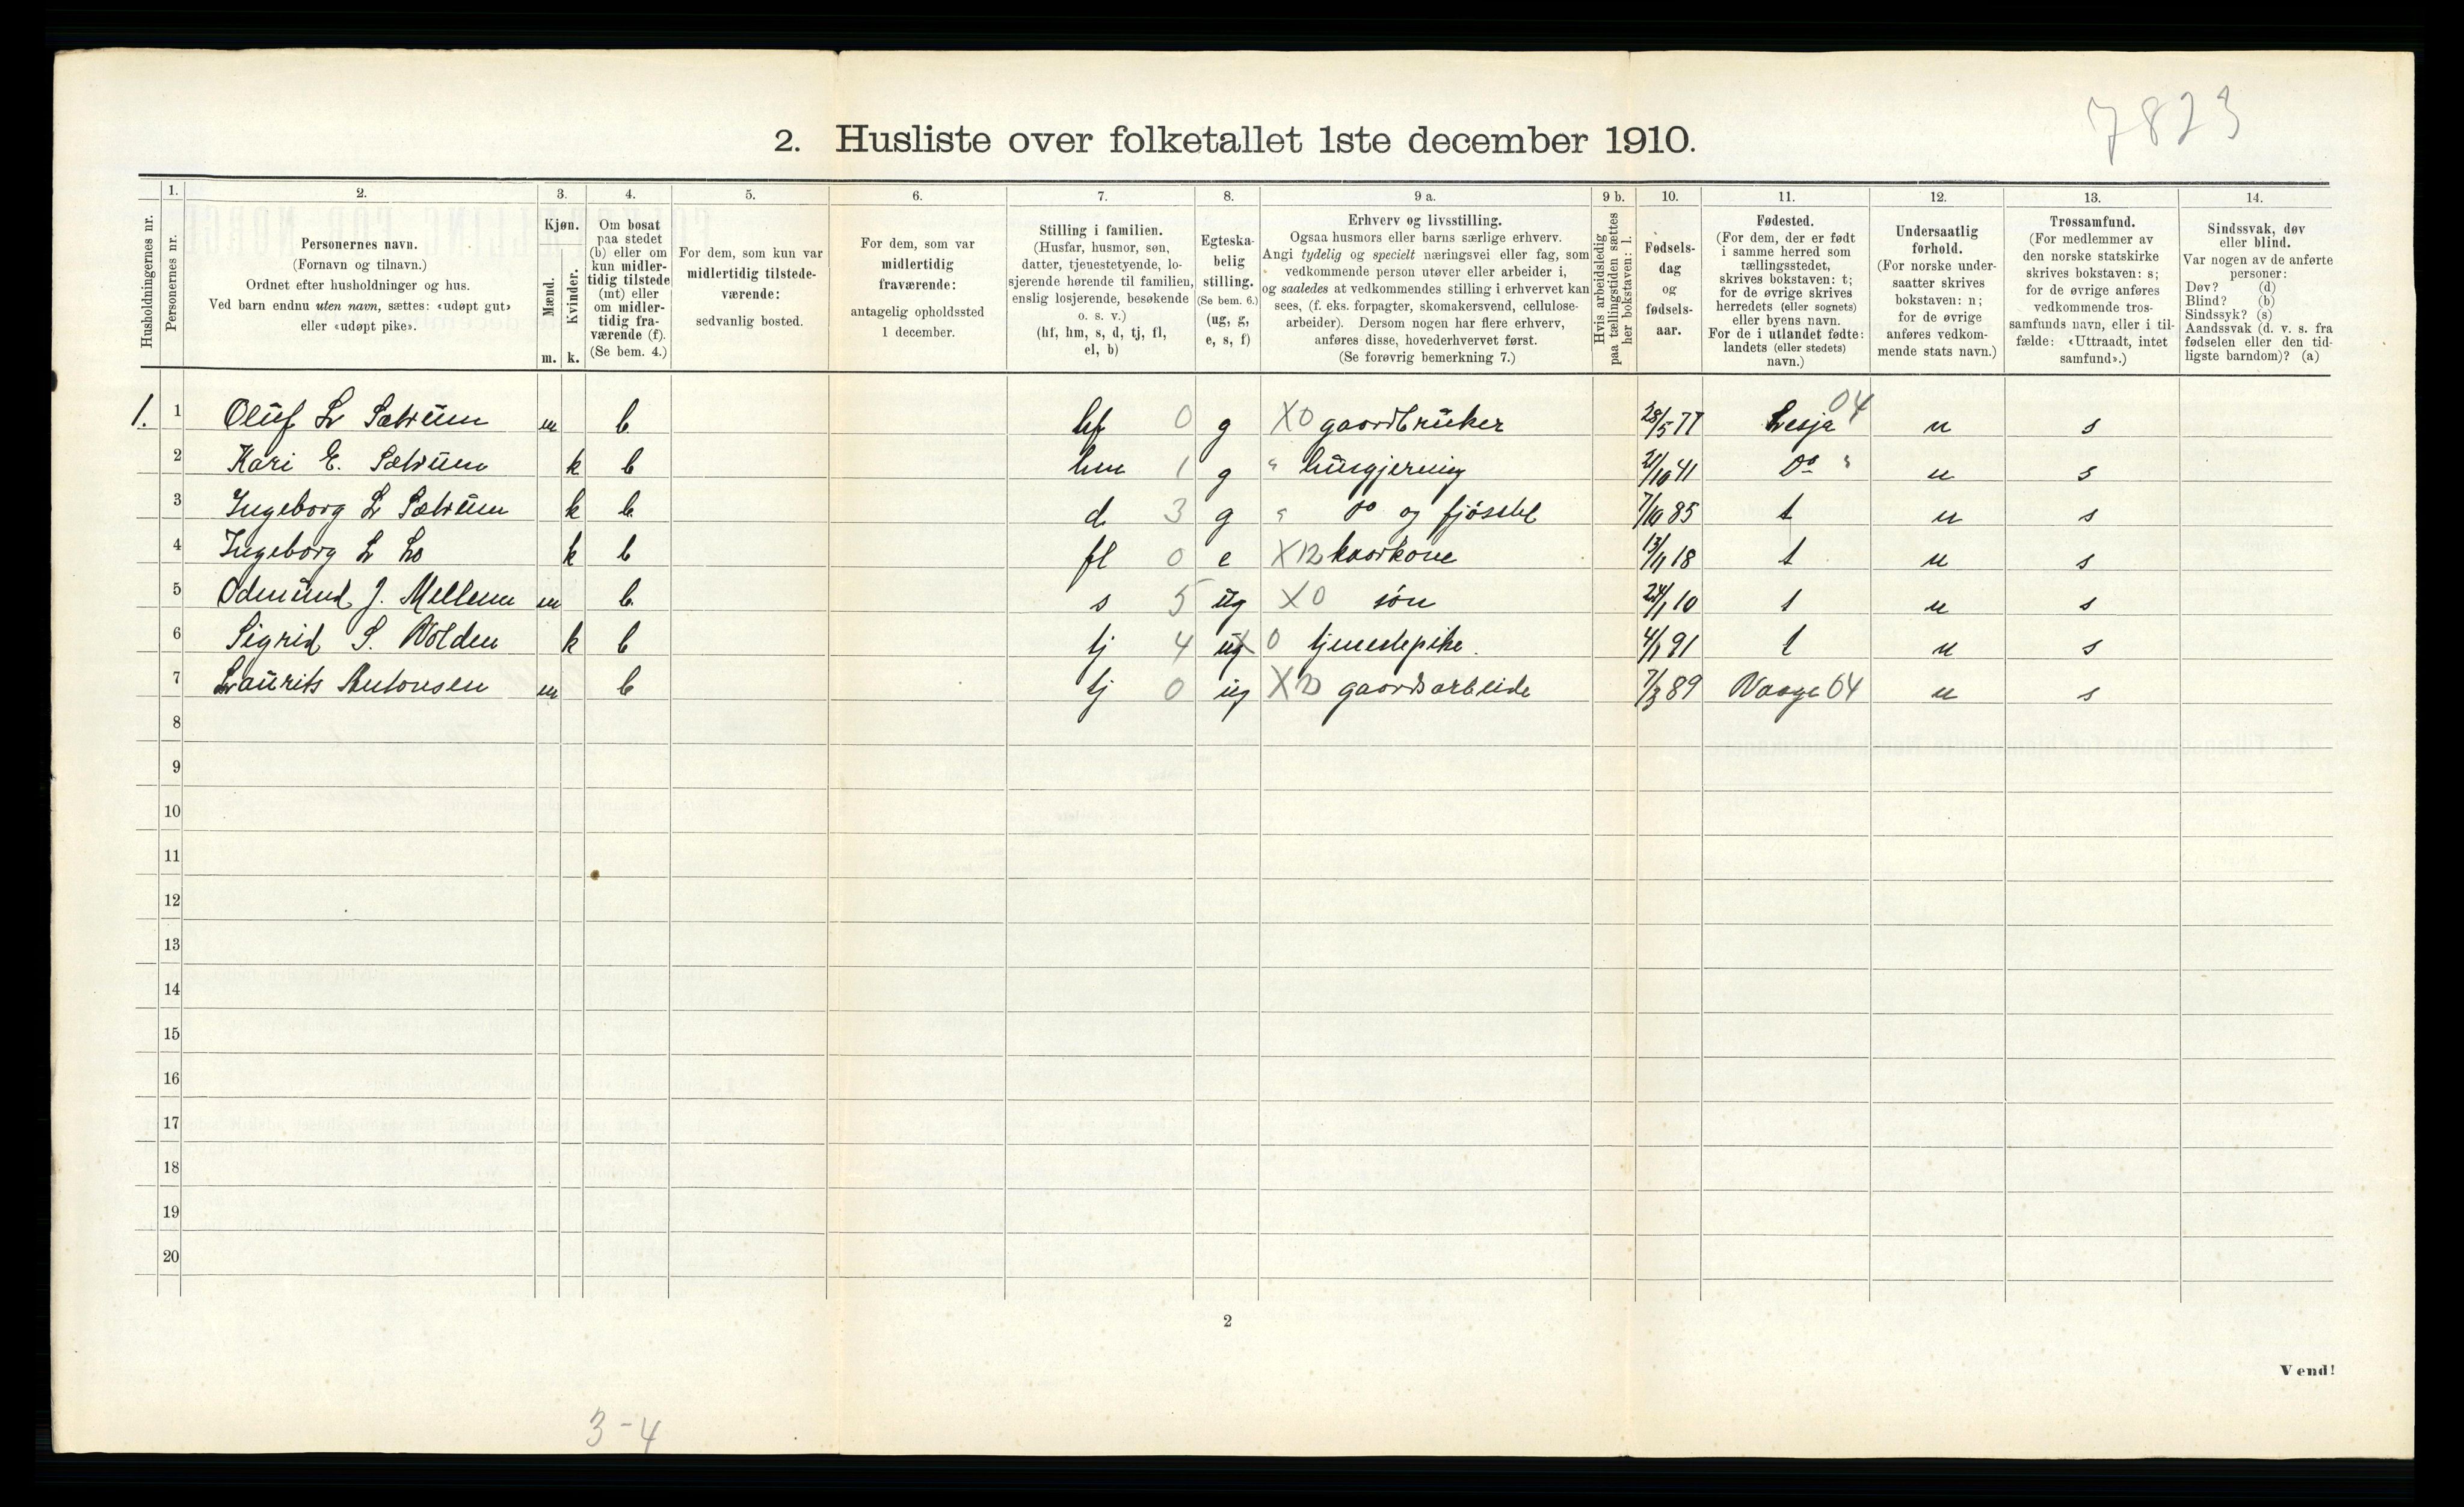 7823
2. Husliste over folketallet 1ste december 1910.
Husholdningernes nr.
1.
Personernes nr.
2.
Personernes navn.
(Fornavn og tilnavn.)
Ordnet efter husholdninger og hus.
Ved barn endnu uten navn, sættes: «udøpt gut»
eller «udøpt pike».
3.
Kjøn.
Mænd.
Kvinder.
m. k.
4.
Om bosat
paa stedet
(b) eller om
kun midler-
tidig tilstede
(mt) eller
om midler-
tidig fra-
værende (f).
(Se bem. 4.)
5.
For dem, som kun var
midlertidig tilstede-
værende:
sedvanlig bosted.
6.
For dem, som var
midlertidig
fraværende:
antagelig opholdssted
1 december.
7.
Stilling i familien.
(Husfar, husmor, søn,
datter, tjenestetyende, lo-
sjerende hørende til familien,
enslig losjerende, besøkende
o. s. v.)
(hf, hm, s, d, tj, fl,
el, b)
8.
Egteska-
belig
stilling.
(Se bem. 6.)
(ug, g,
e, s, f)
9 a.
Erhverv og livsstilling.
Ogsaa husmors eller barns særlige erhverv.
Angi tydelig og specielt næringsvei eller fag, som
vedkommende person utøver eller arbeider i,
og saaledes at vedkommendes stilling i erhvervet kan
sees, (f. eks. forpagter, skomakersvend, cellulose-
arbeider). Dersom nogen har flere erhverv,
anføres disse, hovederhvervet først.
(Se forøvrig bemerkning 7.)
9 b.
Hvis arbeidsledig
paa tællingstiden sættes
her bokstaven: l.
10.
Fødsels-
dag
og
fødsels-
aar.
11.
Fødested.
(For dem, der er født
i samme herred som
tællingsstedet,
skrives bokstaven: t;
for de øvrige skrives
herredets (eller sognets)
eller byens navn.
For de i utlandet fødte:
landets (eller stedets)
navn.)
12.
Undersaatlig
forhold.
(For norske under-
saatter skrives
bokstaven: n;
for de øvrige
anføres vedkom-
mende stats navn.)
13.
Trossamfund.
(For medlemmer av
den norske statskirke
skrives bokstaven: s;
for de øvrige anføres
vedkommende tros-
samfunds navn, eller i til-
fælde: «Uttraadt, intet
samfund».)
14.
Sindssvak, døv
eller blind.
Var nogen av de anførte
personer:
Døv? (d)
Blind? (b)
Sindssyk? (s)
Aandssvak (d. v. s. fra
fødselen eller den tid-
ligste barndom)? (a)
1. 1 Oluf L Sætrum m b hf 0 g X0 gaardbruker 28/5 77 Lesja 04 n s
2 Kari E. Sætrum k b hm 1 g " husgjerning 21/10 41 Do " n s
3 Ingeborg L Sætrum k b d 3 g " do og fjøsstel 7/10 85 t n s
4 Ingeborg L Lo k b fl 0 e X12 kaarkone 13/11 18 t n s
5 Odmund J. Mellem m b s 5 ug X0 søn 24/1 10 t n s
6 Sigrid S. Volden k b tj 4 ug X 0 tjenestepike. 4/1 91 t n s
7 Laurits Antonsen m b tj 0 ug X gaardsarbeide 7/3 89 Vaage 04 n s
8
9
10
11
12
13
14
15
16
17
18
19
20
2
Vend!
3-4